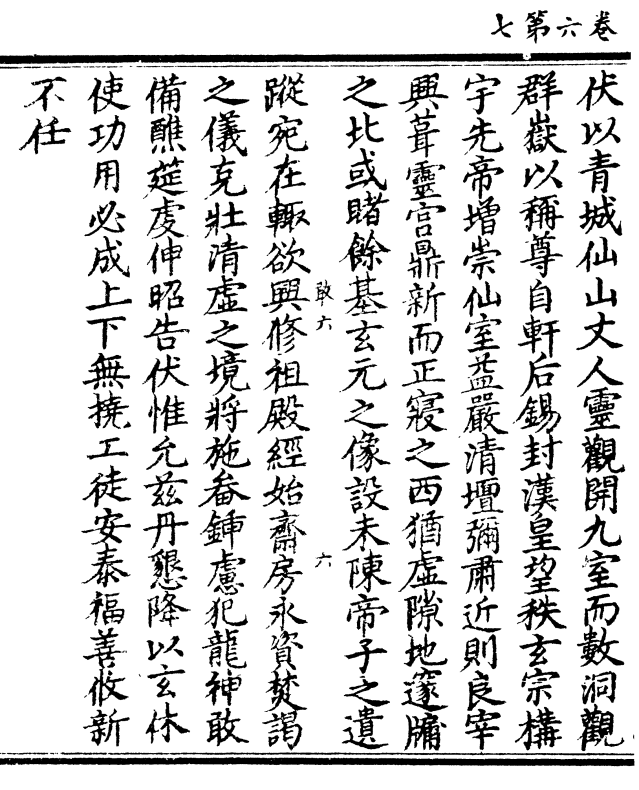 卷六第七
伏以青城仙山丈人靈觀開九室而數洞觀
群嶽以稱尊自軒后錫封漢皇望秩玄宗構
宇先帝增崇仙室益嚴清壇彌肅近則良宰
興葺靈宮鼎新而正寢之西猶虛隙地邃牖
之北或睹餘基玄元之像設未陳帝子之遺
蹤宛在輙欲興修祖殿經始齋房永資焚謁
敢六
六
之儀克壯清虛之境將施畚鍤慮犯龍神敢
備醮筵虔伸昭告伏惟允茲丹懇降以玄休
使功用必成上下無撓工徒安泰福善攸新
不任